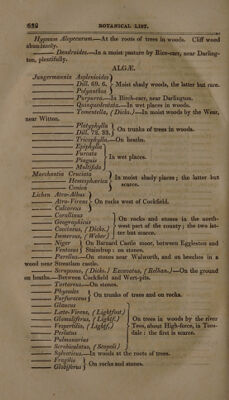 632 BOTANICAL LIST.
Hypnum Alopecurum.—At the roots of trees in woods. Cliff wood
abundantly.
——— Dendroides.—In a moist pasture by Rice-carr, near Darling-
ton, plentifully.
ALGÆ.
Jungermannia Asplenioides
——— Dill. 69. 6. } Moist shady woods, the latter but rare.
——— Polyanthos
——— Purpurea.—In Birch-carr, near Darlington.
——— Quinquedentata.—In wet places in woods.
——— Tomentella, (Dicks.)—In moist woods by the Wear,
near Witton.
——— Platyphylla
——— Dill. 72. 33. } On trunks of trees in woods.
——— Tricophylla.—On heaths.
——— Epiphylla
——— Furcata
——— Pinguis } In wet places.
——— Multifida
Marchantia Cruciata
——— Hemisphærica } In moist shady places; the latter but
——— Conica scarce.
Lichen Atro-Albus
——— Atro-Virens } On rocks west of Cockfield.
——— Calcareus
——— Corallinus
——— Geographicus } On rocks and stones in the north-
——— Coccineus, (Dicks.) west part of the county; the two lat-
——— Immersus, (Weber) ter but scarce.
——— Niger } On Barnard Castle moor, between Eggleston and
——— Ventosus Staindrop: on stones.
——— Parellus.—On stones near Walworth, and on beeches in a
wood near Streatlam castle.
——— Scruposus, (Dicks.) Excavatus, (Relhan.)—On the ground
on heaths.—Between Cockfield and Wert-pits.
——— Tartareus.—On stones.
——— Physodes
——— Furfuraceus } On trunks of trees and on rocks.
——— Glaucus
——— Læte-Virens, (Lightfoot)
——— Glomuliferus, (Lightf.) On trees in woods by the river
——— Vespertilio, (Lightf.) } Tees, about High-force, in Tees-
——— Perlatus dale: the first is scarce.
——— Pulmonarius
——— Scrobiculatus, (Scopoli)
——— Sylvaticus.—In woods at the roots of trees.
——— Fragilis
——— Globiferus } On rocks and stones.